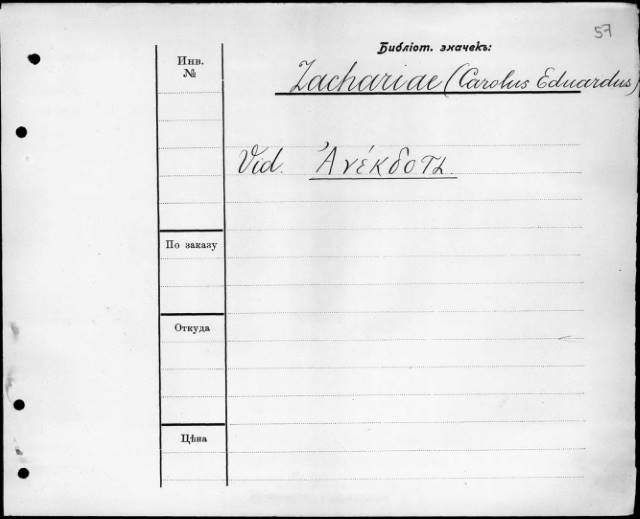 57
Библіот. значекъ:
Инв.
№
Zachariae (Carolus Eduardus)
Vid. Ἀνέκδοτα.
По заказу
Откуда
Цѣна